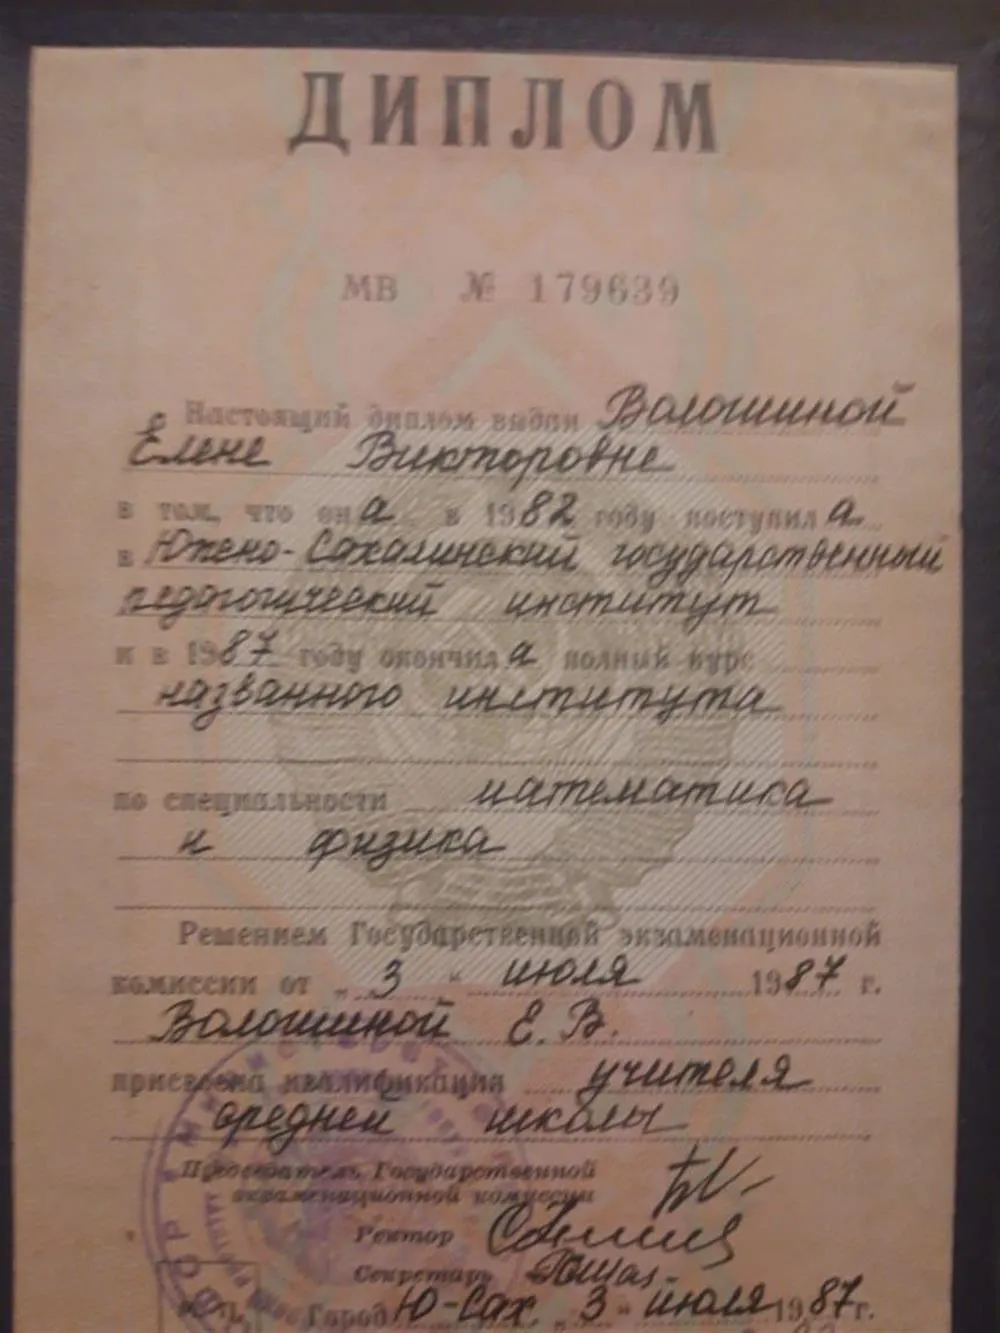 ДИПЛОМ
МВ № 179639
Настоящий диплом выдан Волошиной
Елене Викторовне
в том, что она в 1982 году поступила
в Южно-Сахалинский государственный
педагогический институт
и в 1987 году окончила полный курс
названного института
по специальности математика
и физика
Решением Государственной экзаменационной
комиссии от „3“ июля 1987 г.
Волошиной Е. В.
присвоена квалификация учителя
средней школы
Председатель Государственной
экзаменационной комиссии
Ректор
Секретарь
Город Ю-Сах. „3“ июля 1987 г.